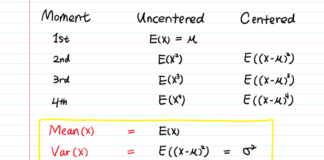 Moment Uncentered Centered
1st E(X) = μ
2nd E(X²) E((X-μ)²)
3rd E(X³) E((X-μ)³)
4th E(X⁴) E((X-μ)⁴)
Mean(X) = E(X)
Var(X) = E((X-μ)²) = σ²